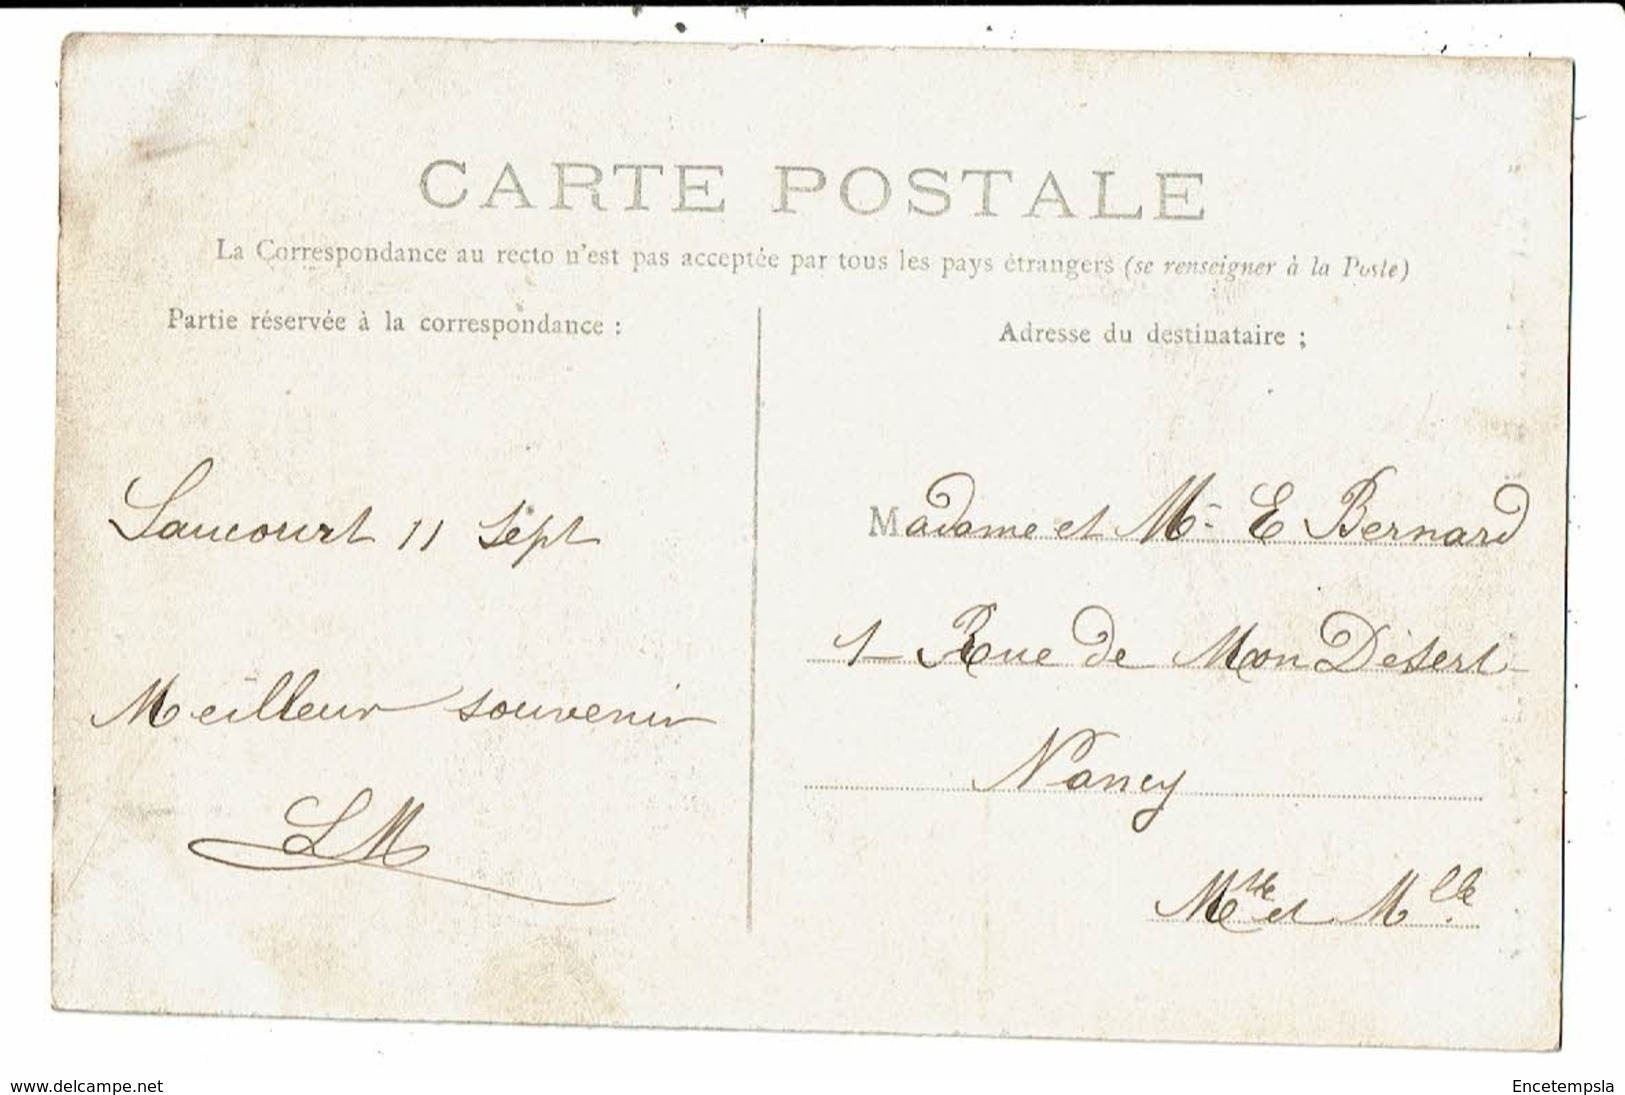 CARTE POSTALE
La Correspondance au recto n'est pas acceptée par tous les pays étrangers (se renseigner à la Poste)
Partie réservée à la correspondance :
Saucourt 11 Sept
Meilleur souvenir
LM
Adresse du destinataire :
Madame et Mr E Bernard
1 Rue de Mon Désert
Nancy
Mthe et Mlle
www.delcampe.net
Encetempsla